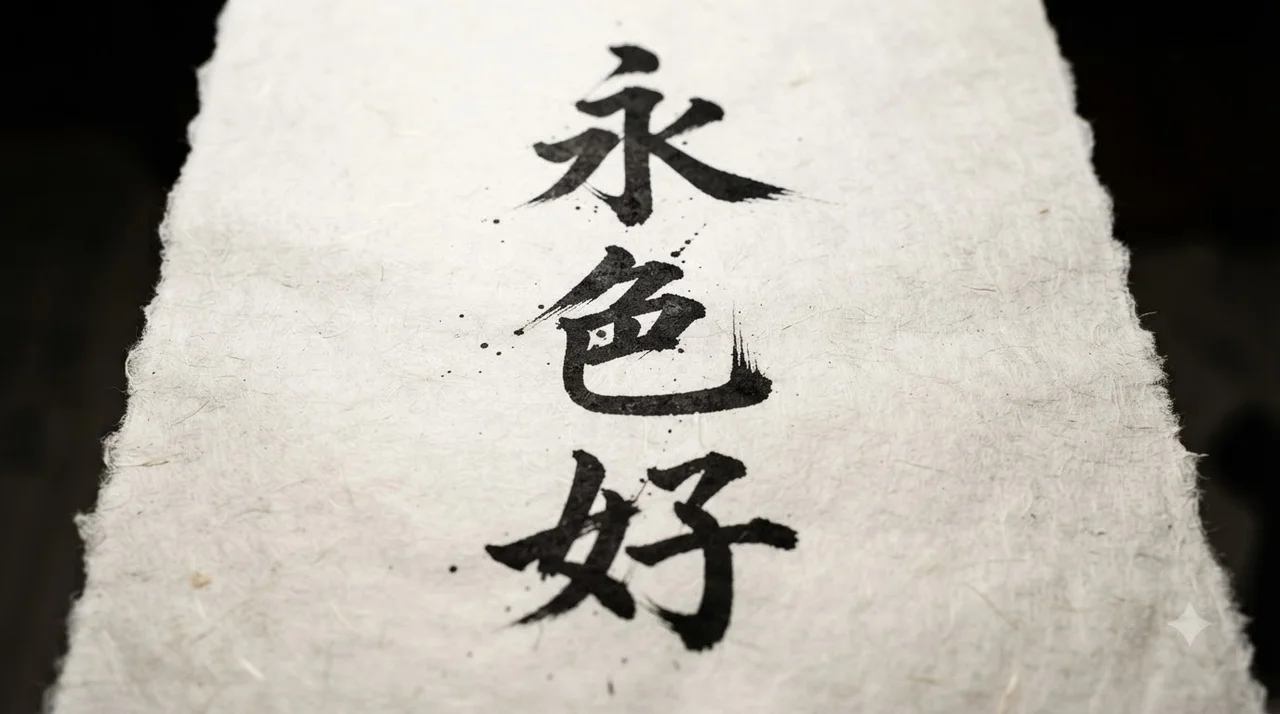 永色好